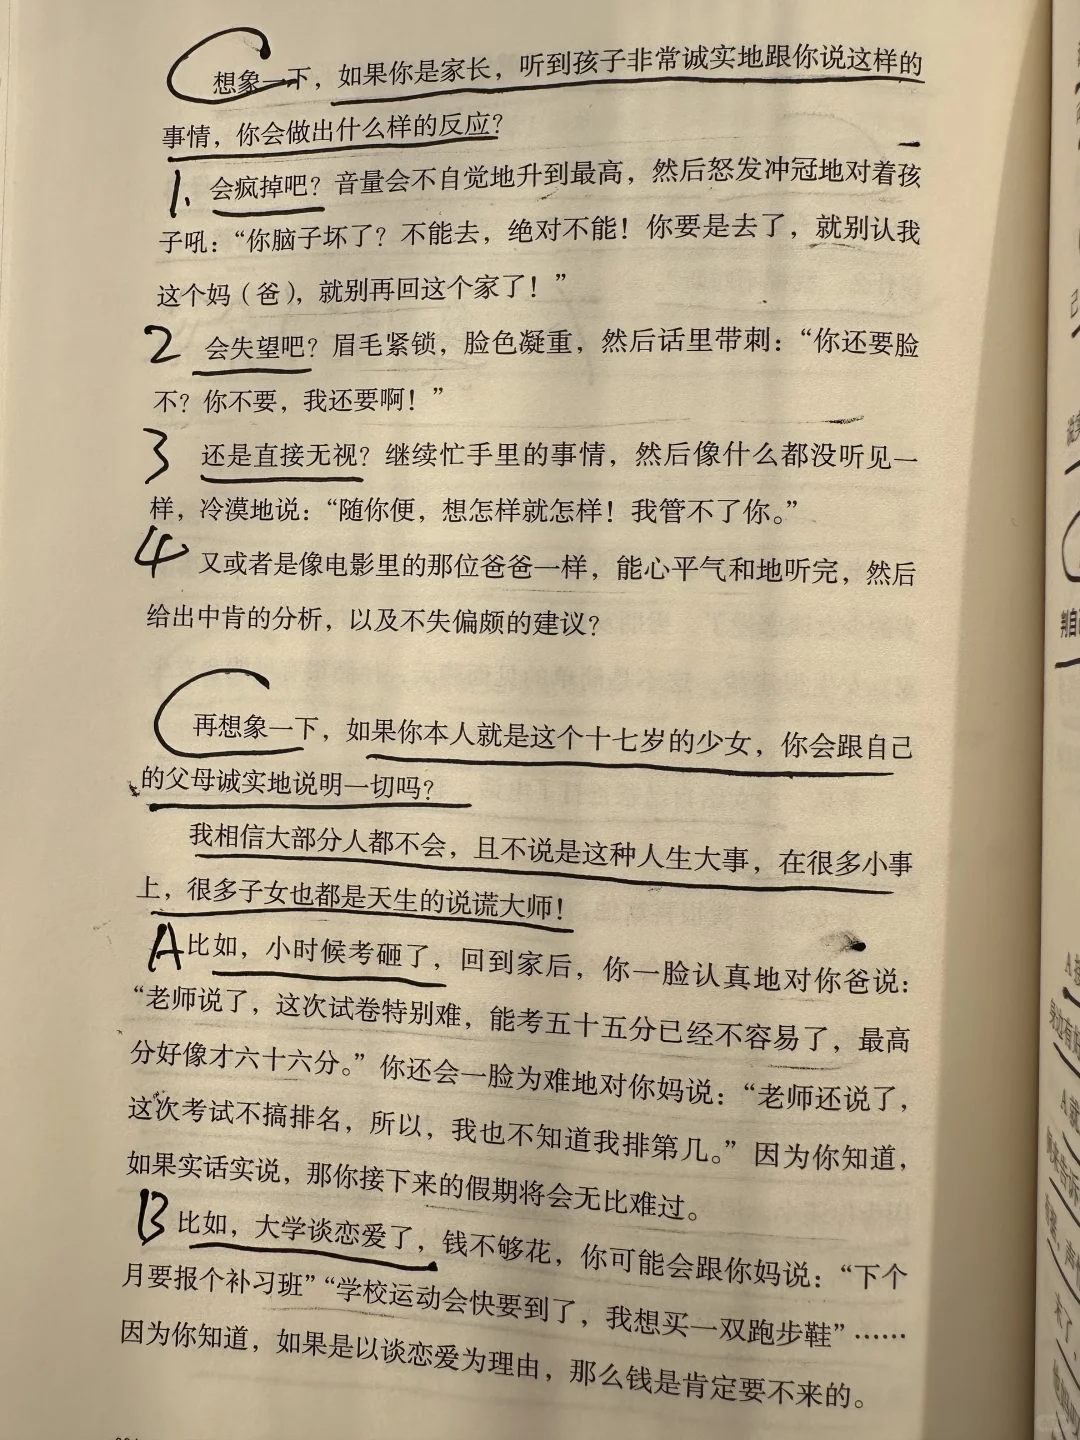 想象一下，如果你是家长，听到孩子非常诚实地跟你说这样的
事情，你会做出什么样的反应？
1、会疯掉吧？音量会不自觉地升到最高，然后怒发冲冠地对着孩
子吼：“你脑子坏了？不能去，绝对不能！你要是去了，就别认我
这个妈（爸），就别再回这个家了！”
2 会失望吧？眉毛紧锁，脸色凝重，然后话里带刺：“你还要脸
不？你不要，我还要啊！”
3 还是直接无视？继续忙手里的事情，然后像什么都没听见一
样，冷漠地说：“随你便，想怎样就怎样！我管不了你。”
4 又或者是像电影里的那位爸爸一样，能心平气和地听完，然后
给出中肯的分析，以及不失偏颇的建议？
再想象一下，如果你本人就是这个十七岁的少女，你会跟自己
的父母诚实地说明一切吗？
我相信大部分人都不会，且不说是这种人生大事，在很多小事
上，很多子女也都是天生的说谎大师！
A 比如，小时候考砸了，回到家后，你一脸认真地对你爸说：
“老师说了，这次试卷特别难，能考五十五分已经不容易了，最高
分好像才六十六分。”你还会一脸为难地对你妈说：“老师还说了，
这次考试不搞排名，所以，我也不知道我排第几。”因为你知道，
如果实话实说，那你接下来的假期将会无比难过。
B 比如，大学谈恋爱了，钱不够花，你可能会跟你妈说：“下个
月要报个补习班”“学校运动会快要到了，我想买一双跑步鞋”……
因为你知道，如果是以谈恋爱为理由，那么钱是肯定要不来的。